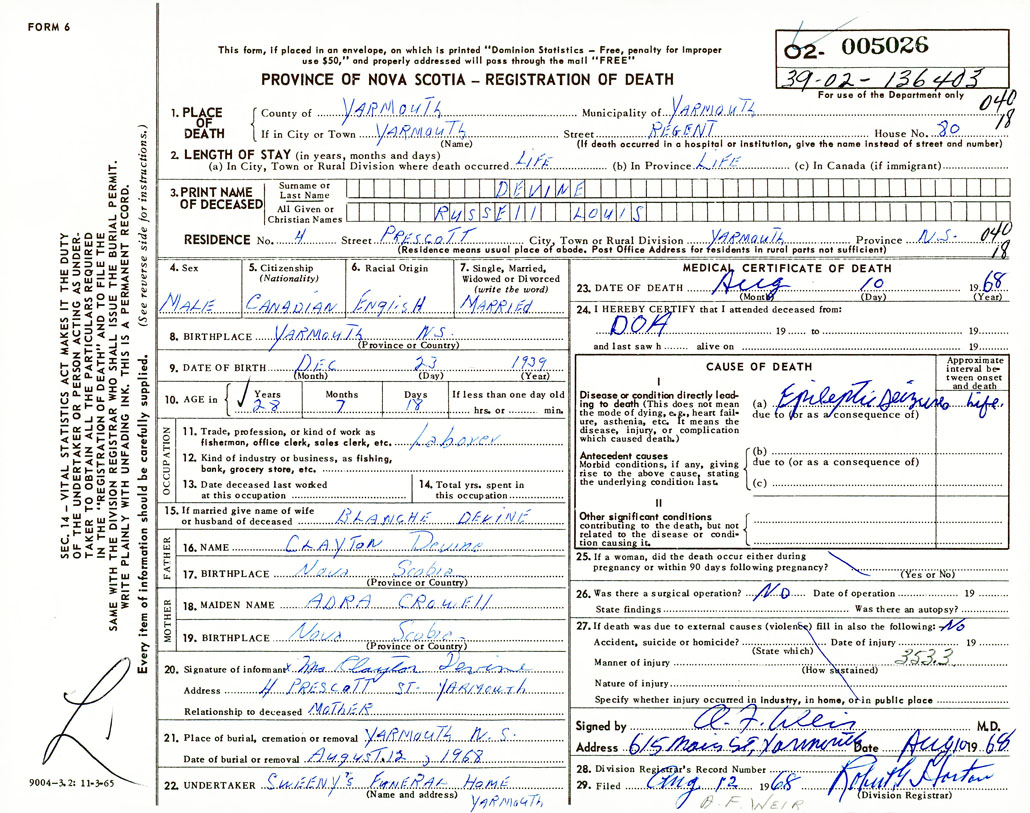 FORM 6
This form, if placed in an envelope, on which is printed "Dominion Statistics – Free, penalty for improper
use $50," and properly addressed will pass through the mail "FREE"
PROVINCE OF NOVA SCOTIA – REGISTRATION OF DEATH
02- 005026
39-02-136403
For use of the Department only
040
18
1. PLACE OF DEATH
County of YARMOUTH Municipality of YARMOUTH
If in City or Town YARMOUTH Street REGENT House No. 80
(Name) (If death occurred in a hospital or institution, give the name instead of street and number)
2. LENGTH OF STAY (in years, months and days)
(a) In City, Town or Rural Division where death occurred LIFE (b) In Province LIFE (c) In Canada (if immigrant)
3. PRINT NAME OF DECEASED
Surname or Last Name DEVINE
All Given or Christian Names RUSSEll LOUIS
RESIDENCE No. 4 Street PRESCOTT City, Town or Rural Division YARMOUTH Province N.S. 040
(Residence means usual place of abode. Post Office Address for residents in rural parts not sufficient) 18
4. Sex
MALE
5. Citizenship
(Nationality)
CANADIAN
6. Racial Origin
EnglisH
7. Single, Married,
Widowed or Divorced
(write the word)
MARRIED
8. BIRTHPLACE YARMOUTH N.S.
(Province or Country)
9. DATE OF BIRTH DEC 23 1939
(Month) (Day) (Year)
10. AGE in ✓ Years Months Days If less than one day old
28 7 18 hrs. or min.
OCCUPATION
11. Trade, profession, or kind of work as
fisherman, office clerk, sales clerk, etc. Laborer
12. Kind of industry or business, as fishing,
bank, grocery store, etc.
13. Date deceased last worked
at this occupation
14. Total yrs. spent in
this occupation
15. If married give name of wife
or husband of deceased BLANCHE DEVINE
FATHER
16. NAME CLAYTON Devine
17. BIRTHPLACE Nova Scotia
(Province or Country)
MOTHER
18. MAIDEN NAME ADRA CROWEll
19. BIRTHPLACE Nova Scotia
(Province or Country)
20. Signature of informant x Mrs Clayton Devine
Address 4 PRESCOTT ST. YARMOUTH
Relationship to deceased MOTHER
21. Place of burial, cremation or removal YARMOUTH N.S.
Date of burial or removal August 12, 1968
22. UNDERTAKER SWEENY'S FUNERAL HOME
(Name and address) YARMOUTH
MEDICAL CERTIFICATE OF DEATH
23. DATE OF DEATH Aug 10 1968
(Month) (Day) (Year)
24. I HEREBY CERTIFY that I attended deceased from:
DOA 19 to 19
and last saw h alive on 19
CAUSE OF DEATH
Approximate
interval be-
tween onset
and death
I
Disease or condition directly lead-
ing to death (This does not mean
the mode of dying, e.g., heart fail-
ure, asthenia, etc. It means the
disease, injury, or complication
which caused death.)
(a) Epileptic Seizures life.
due to (or as a consequence of)
Antecedent causes
Morbid conditions, if any, giving
rise to the above cause, stating
the underlying condition last.
(b)
due to (or as a consequence of)
(c)
II
Other significant conditions
contributing to the death, but not
related to the disease or condi-
tion causing it.
25. If a woman, did the death occur either during
pregnancy or within 90 days following pregnancy?
(Yes or No)
26. Was there a surgical operation? NO Date of operation 19
State findings Was there an autopsy?
27. If death was due to external causes (violence) fill in also the following: No
Accident, suicide or homicide? Date of injury 19
(State which)
Manner of injury 353.3
(How sustained)
Nature of injury
Specify whether injury occurred in industry, in home, or in public place
Signed by A. F. Weir M.D.
Address 615 Main St, Yarmouth Date Aug 10 1968
28. Division Registrar's Record Number
29. Filed Aug 12 1968 Robert G. Horton
A. F. WEIR (Division Registrar)
SEC. 14 – VITAL STATISTICS ACT MAKES IT THE DUTY
OF THE UNDERTAKER OR PERSON ACTING AS UNDER-
TAKER TO OBTAIN ALL THE PARTICULARS REQUIRED
IN THE "REGISTRATION OF DEATH" AND TO FILE THE
SAME WITH THE DIVISION REGISTRAR WHO SHALL ISSUE THE BURIAL PERMIT.
WRITE PLAINLY WITH UNFADING INK. THIS IS A PERMANENT RECORD.
Every item of information should be carefully supplied. (See reverse side for instructions.)
9004-3.2: 11-3-65